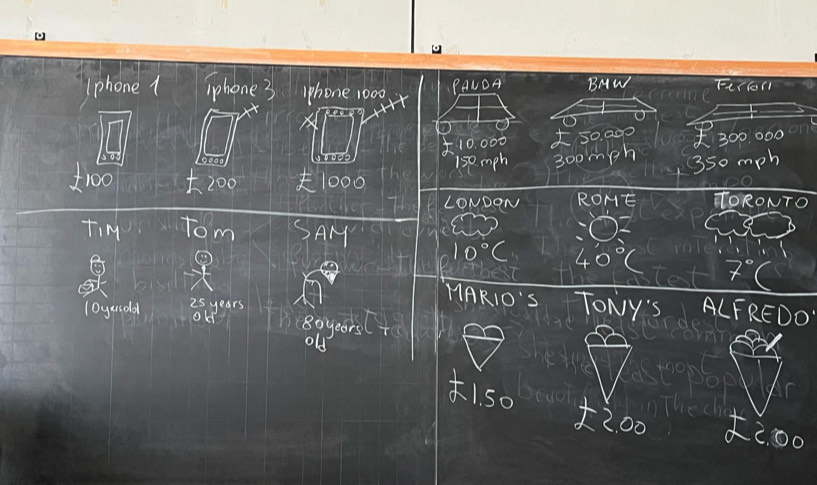 Iphone 1
iphone 3
iphone 1000
£100
£200
£1000
TIM
Tom
SAM
10 years old
25 years
old
80 years
old
PANDA
BMW
Ferrari
£10.000
£50.000
£300.000
150 mph
300 mph
350 mph
LONDON
ROME
TORONTO
10°C
40°C
7°C
MARIO'S
TONY'S
ALFREDO'
£1.50
£2.00
£2.00